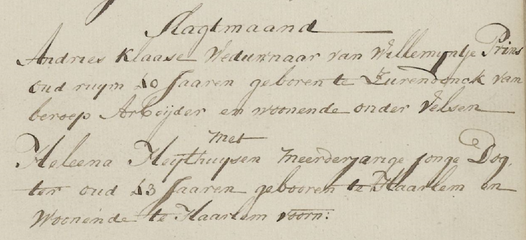 Slagtmaand
Andries Klaase Weduwnaar van Willemyntje Prins
oud ruym 40 Jaaren geboren te Zurendonck van
beroep Arbeijder en woonende onder Velsen
Met
Heleena Heijthuysen meerderjarige jonge Dog,
ter oud 43 Jaaren gebooren te Haarlem en
Woonende te Haarlem voorn: